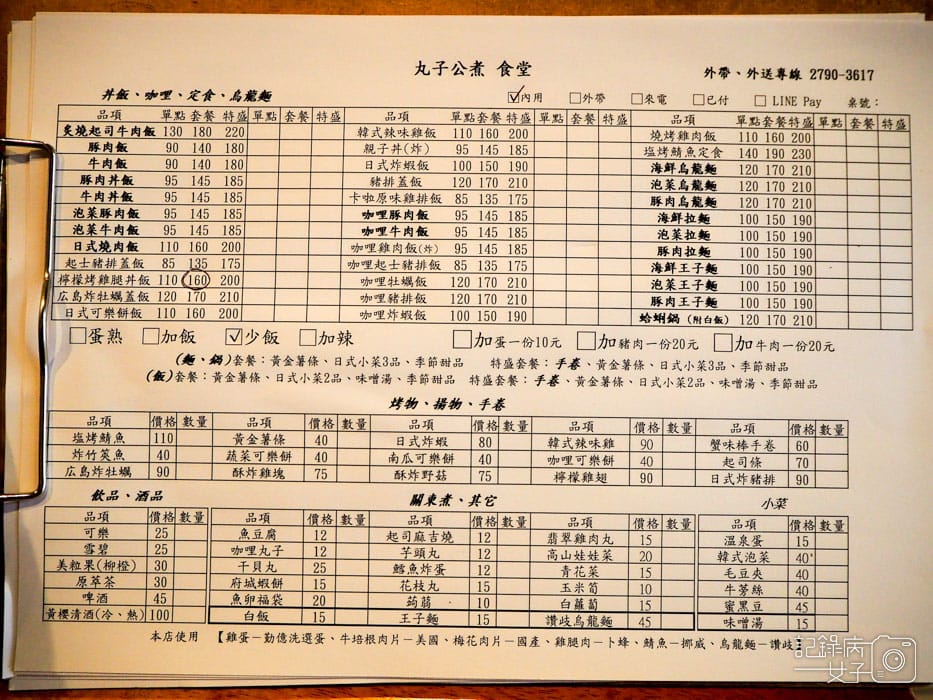 丸子公煮 食堂
外帶、外送專線 2790-3617
丼飯、咖哩、定食、烏龍麵
☑內用 □外帶 □來電 □已付 □ LINE Pay 桌號:
品項 單點 套餐 特盛 單點 套餐 特盛 品項 單點 套餐 特盛 單點 套餐 特盛 品項 單點 套餐 特盛 單點 套餐 特盛
炙燒起司牛肉飯 130 180 220 韓式辣味雞飯 110 160 200 燒烤雞肉飯 110 160 200
豚肉飯 90 140 180 親子丼(炸) 95 145 185 塩烤鯖魚定食 140 190 230
牛肉飯 90 140 180 日式炸蝦飯 100 150 190 海鮮烏龍麵 120 170 210
豚肉丼飯 95 145 185 豬排蓋飯 120 170 210 泡菜烏龍麵 120 170 210
牛肉丼飯 95 145 185 卡啦原味雞排飯 85 135 175 豚肉烏龍麵 120 170 210
泡菜豚肉飯 95 145 185 咖哩豚肉飯 95 145 185 海鮮拉麵 100 150 190
泡菜牛肉飯 95 145 185 咖哩牛肉飯 95 145 185 泡菜拉麵 100 150 190
日式燒肉飯 110 160 200 咖哩雞肉飯(炸) 95 145 185 豚肉拉麵 100 150 190
起士豬排蓋飯 85 135 175 咖哩起士豬排飯 85 135 175 海鮮王子麵 100 150 190
檸檬烤雞腿丼飯 110 160 200 咖哩牡蠣飯 120 170 210 泡菜王子麵 100 150 190
広島炸牡蠣蓋飯 120 170 210 咖哩豬排飯 120 170 210 豚肉王子麵 100 150 190
日式可樂餅飯 110 160 200 咖哩炸蝦飯 100 150 190 蛤蜊鍋 (附白飯) 120 170 210
□蛋熟 □加飯 ☑少飯 □加辣 □加蛋一份10元 □加豬肉一份20元 □加牛肉一份20元
(麵、鍋)套餐:黃金薯條、日式小菜3品、季節甜品 特盛套餐:手卷、黃金薯條、日式小菜3品、季節甜品
(飯)套餐:黃金薯條、日式小菜2品、味噌湯、季節甜品 特盛套餐:手卷、黃金薯條、日式小菜2品、味噌湯、季節甜品
烤物、揚物、手卷
品項 價格 數量 品項 價格 數量 品項 價格 數量 品項 價格 數量 品項 價格 數量
塩烤鯖魚 110 黃金薯條 40 日式炸蝦 80 韓式辣味雞 90 蟹味棒手卷 60
炸竹筴魚 40 蔬菜可樂餅 40 南瓜可樂餅 40 咖哩可樂餅 40 起司條 70
広島炸牡蠣 90 酥炸雞塊 75 酥炸野菇 75 檸檬雞翅 90 日式炸豬排 90
飲品、酒品 關東煮、其它 小菜
品項 價格 數量 品項 價格 數量 品項 價格 數量 品項 價格 數量 品項 價格 數量
可樂 25 魚豆腐 12 起司麻吉燒 12 翡翠雞肉丸 15 溫泉蛋 15
雪碧 25 咖哩丸子 12 芋頭丸 12 高山娃娃菜 20 韓式泡菜 40
美粒果(柳橙) 30 干貝丸 25 鱈魚炸蛋 12 青花菜 15 毛豆夾 40
原萃茶 30 府城蝦餅 15 花枝丸 15 玉米筍 10 牛蒡絲 40
啤酒 45 魚卵福袋 20 蒟蒻 10 白蘿蔔 15 蜜黑豆 45
黃櫻清酒(冷、熱) 100 白飯 15 王子麵 15 讚歧烏龍麵 45 味噌湯 15
本店使用 【雞蛋－勤億洗選蛋、牛培根肉片－美國、梅花肉片－國產、雞腿肉－卜蜂、鯖魚－挪威、烏龍麵－讚歧】
記錄病
女子